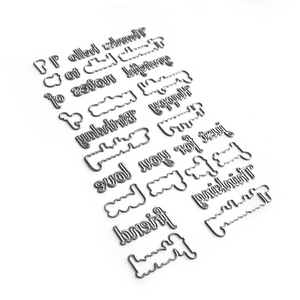 Thanks hello
to
notes of
Happy
Birthday
just for you love
Thinking
friend